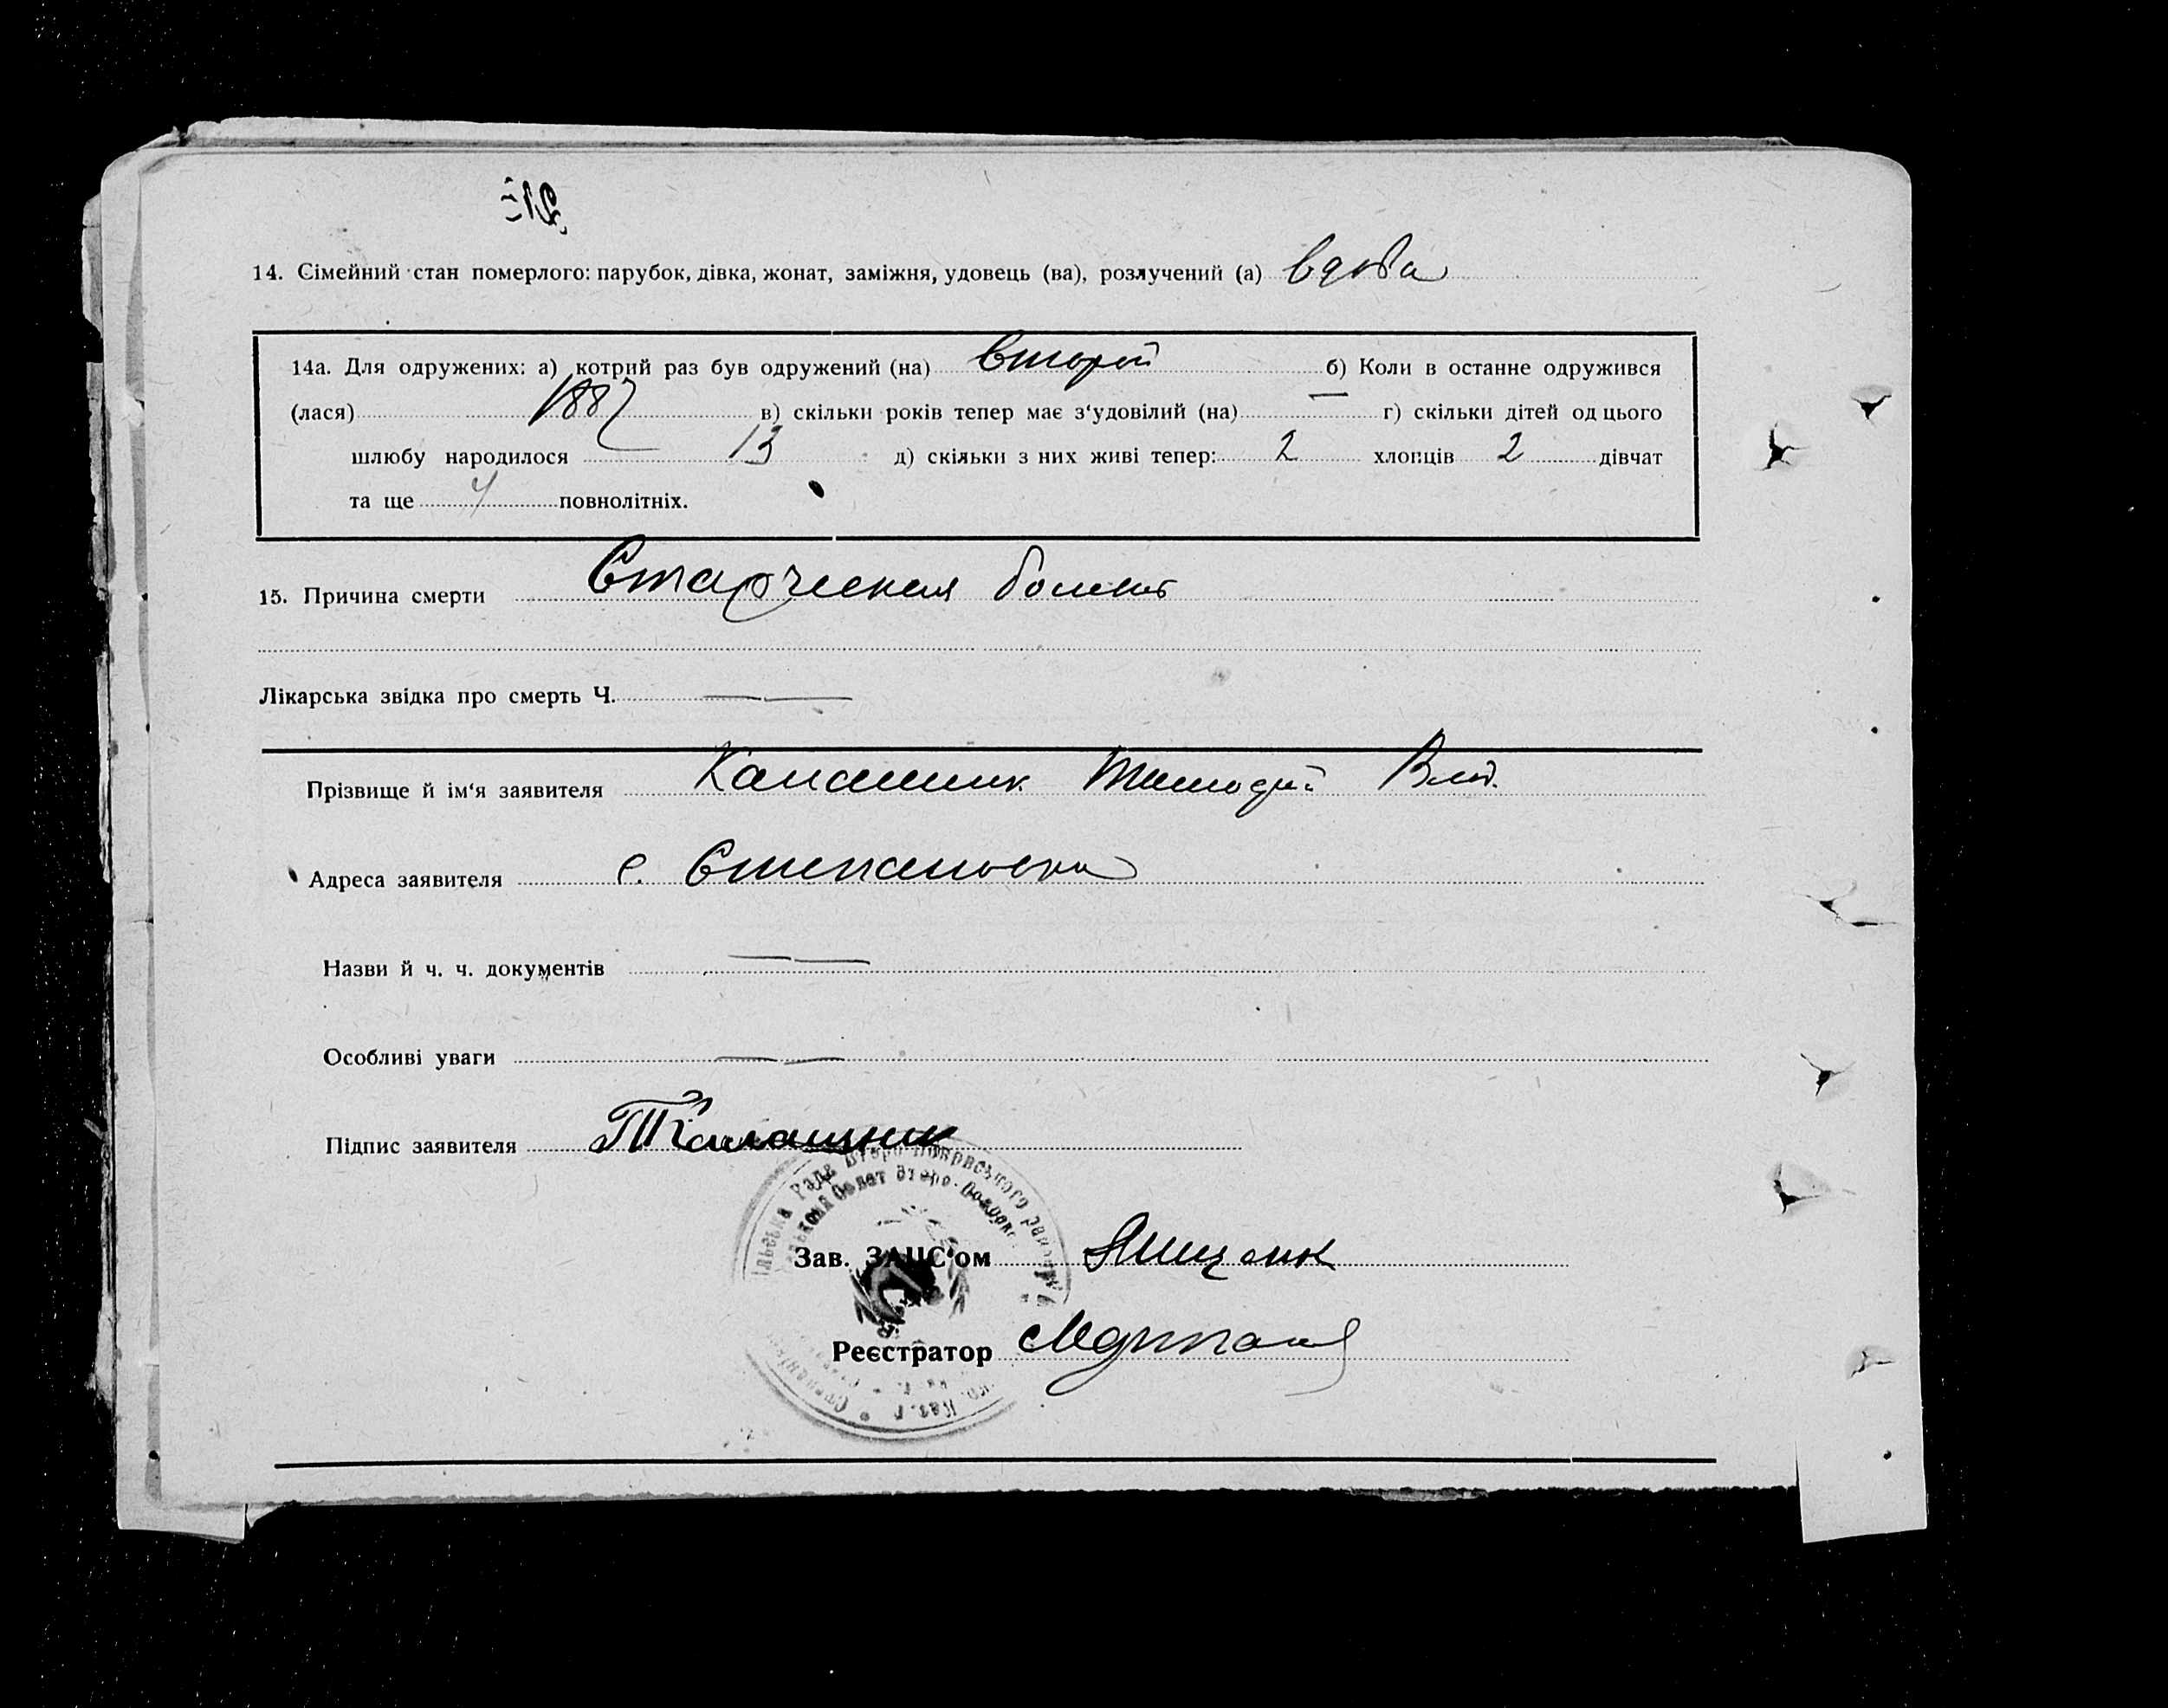 14. Сімейний стан померлого: парубок, дівка, жонат, заміжня, удовець (ва), розлучений (а) вдова
14а. Для одружених: а) котрий раз був одружений (на) второй б) Коли в останне одружився
(лася) 1887 в) скільки років тепер має з'удовілий (на) — г) скільки дітей од цього
шлюбу народилося 13 д) скільки з них живі тепер: 2 хлопців 2 дівчат
та ще 4 повнолітніх.
15. Причина смерти Старческая болезнь
Лікарська звідка про смерть Ч. — —
Прізвище й ім'я заявителя Калашник Тимофей
Адреса заявителя с. Степановка
Назви й ч. ч. документів — —
Особливі уваги — —
Підпис заявителя ТКалашник
Рада Второ-Покровського
Зав. ЗАЦС'ом
Реєстратор